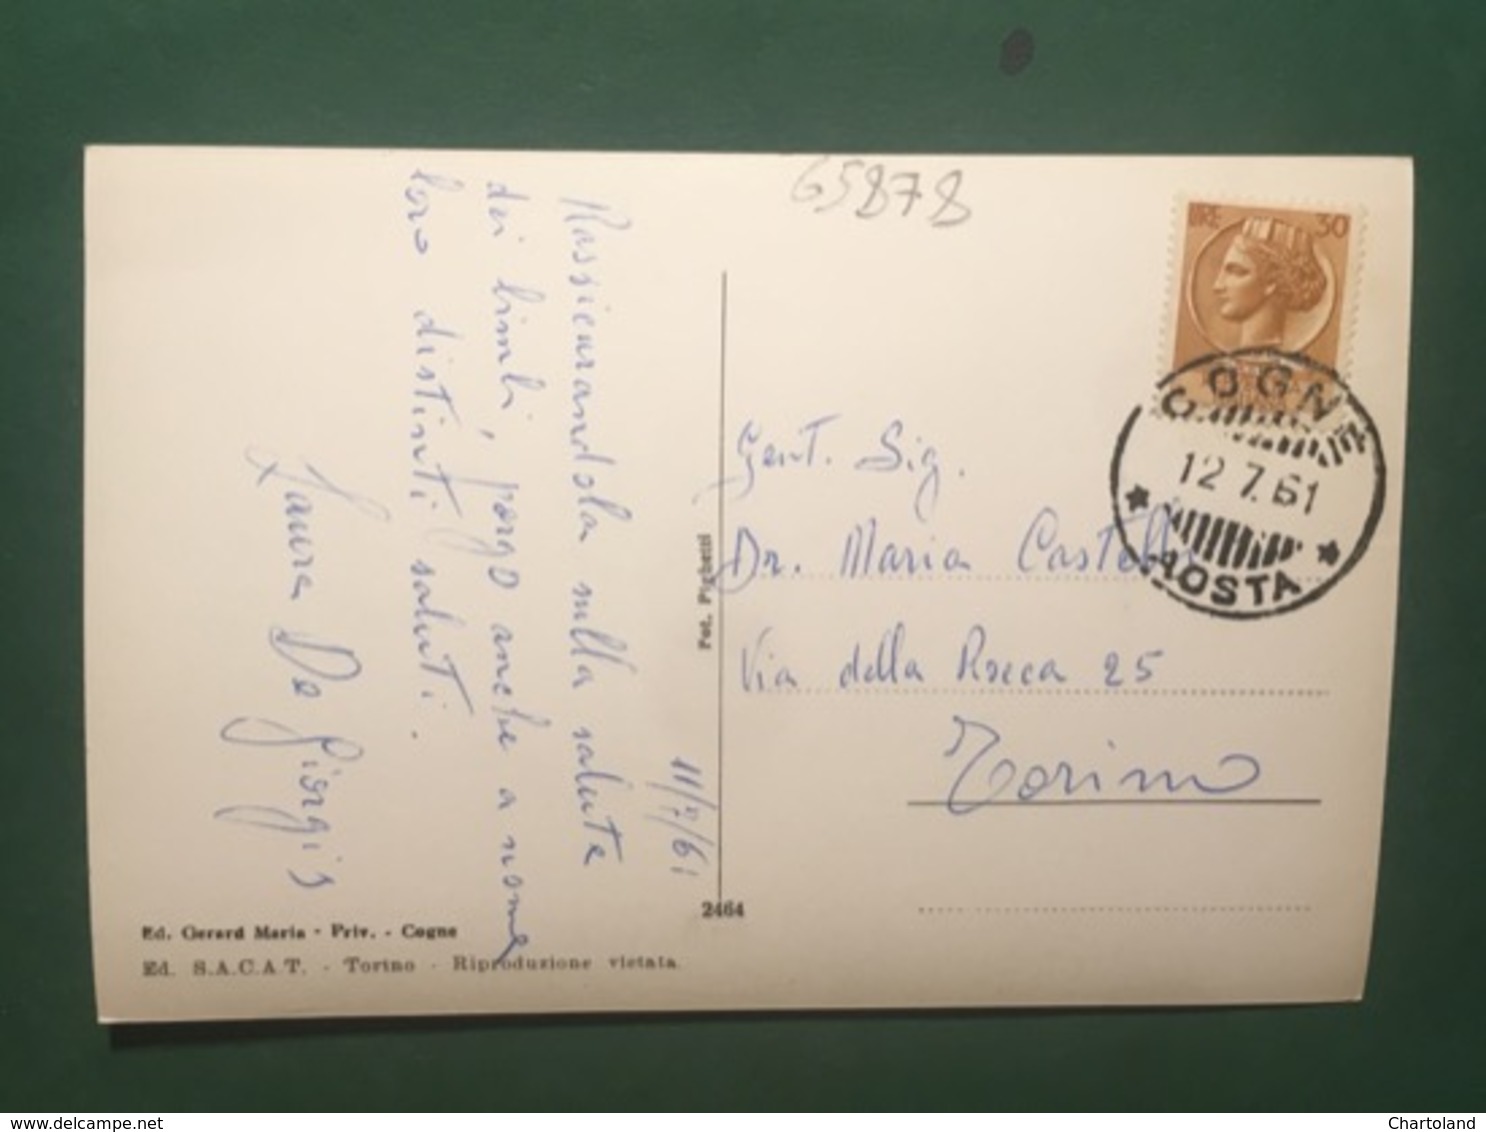 65878
LIRE 30
COGNE
12.7.61
AOSTA
11/7/61
Rassicurandola sulla salute
dei bimbi, porgo anche a nome
loro distinti saluti.
Laura De Giorgis
Gent. Sig.
Dr. Maria Castelli
Via della Rocca 25
Torino
Fot. Pighetti
2464
Ed. Gerard Maria - Priv. - Cogne
Ed. S.A.C.A.T. - Torino - Riproduzione vietata
www.delcampe.net
Chartoland